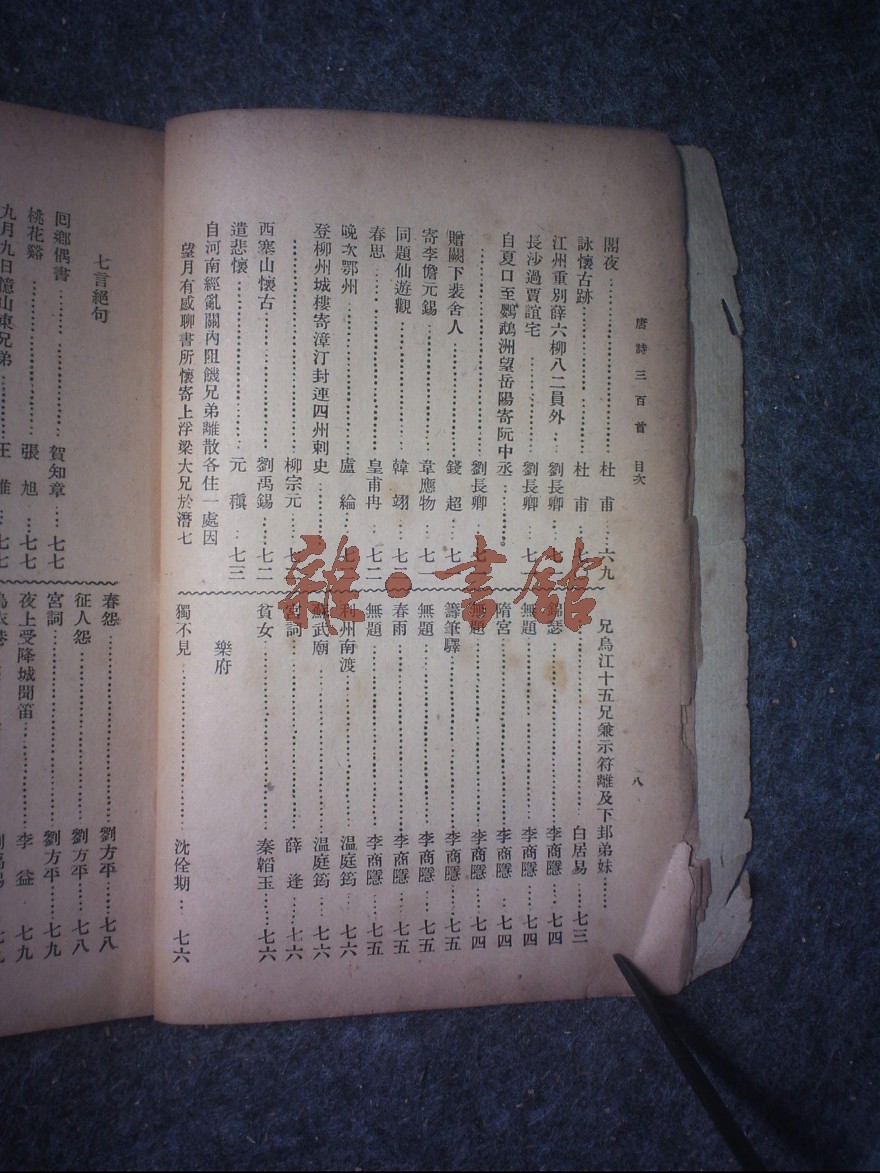 唐詩三百首 目次
八
閣夜……杜甫……六九
詠懷古跡……杜甫…七
江州重別薛六柳八二員外…劉長卿…七
長沙過賈誼宅……劉長卿…七
自夏口至鸚鵡洲望岳陽寄阮中丞……
……劉長卿…七
贈闕下裴舍人……錢起…七
寄李儋元錫……韋應物…七一
同題仙遊觀……韓翃…七二
春思……皇甫冉…七二
晚次鄂州……盧綸…七
登柳州城樓寄漳汀封連四州刺史…
……柳宗元…七
西塞山懷古……劉禹錫…七二
遣悲懷……元稹…七三
自河南經亂關內阻饑兄弟離散各住一處因
望月有感聊書所懷寄上浮梁大兄於潛七
兄烏江十五兄兼示符離及下邽弟妹……
……白居易…七三
錦瑟……李商隱…七四
無題……李商隱…七四
隋宮……李商隱…七四
無題……李商隱…七四
籌筆驛……李商隱…七五
無題……李商隱…七五
春雨……李商隱…七五
無題……李商隱…七五
利州南渡……温庭筠…七六
蘇武廟……温庭筠…七六
宮詞……薛逢…七六
貧女……秦韜玉…七六
樂府
獨不見……沈佺期…七六
七言絕句
回鄉偶書……賀知章…七七
桃花谿……張旭…七七
九月九日憶山東兄弟……王維…七七
春怨……劉方平…七八
征人怨……劉方平…七八
宮詞……劉方平…七九
夜上受降城聞笛……李益…七九
烏衣巷……劉禹錫…七九
雜·書館